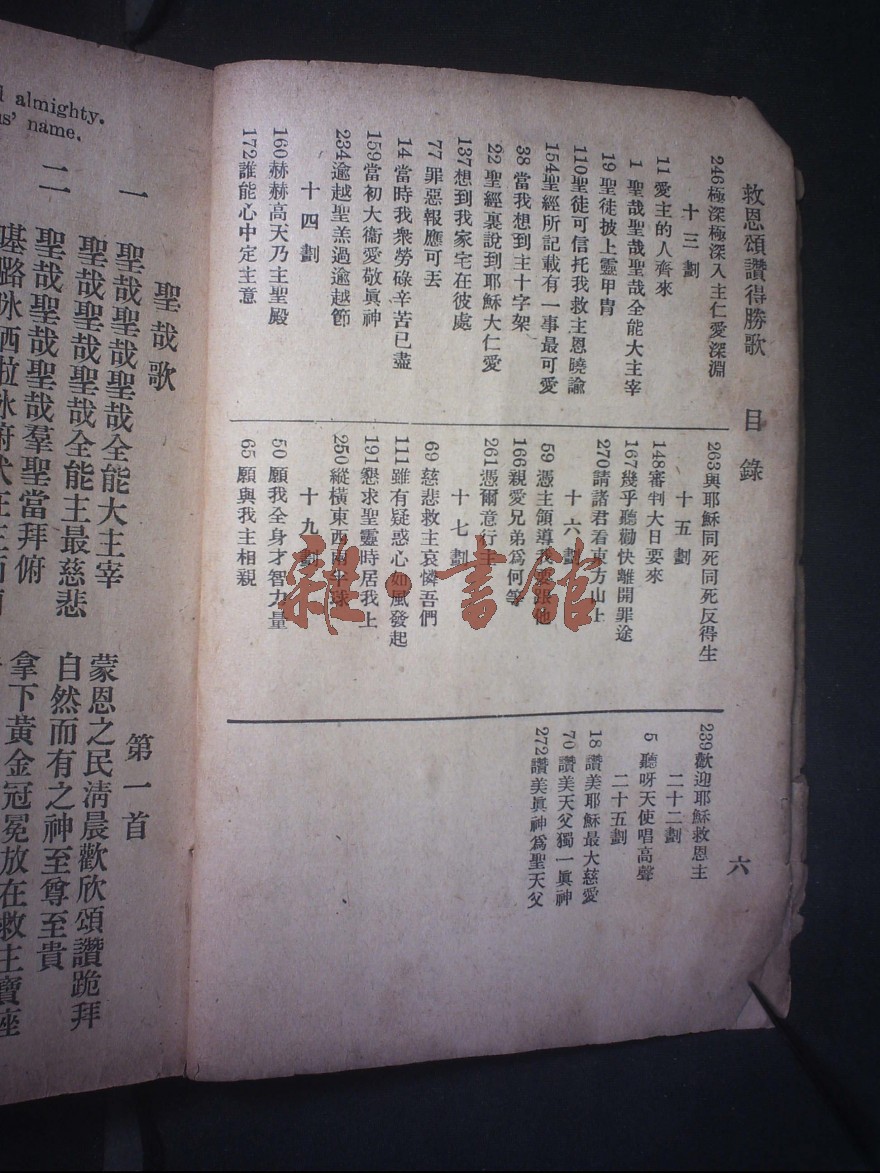 救恩頌讚得勝歌 目錄 六
246極深極深入主仁愛深淵
十三劃
11愛主的人齊來
1聖哉聖哉聖哉全能大主宰
19聖徒披上靈甲冑
110聖徒可信托我救主恩曉諭
154聖經所記載有一事最可愛
38當我想到主十字架
22聖經裏說到耶穌大仁愛
137想到我家宅在彼處
77罪惡報應可丟
14當時我衆勞碌辛苦已盡
159當初大衞愛敬眞神
234逾越聖羔過逾越節
十四劃
160赫赫高天乃主聖殿
172誰能心中定主意
263與耶穌同死同死反得生
十五劃
148審判大日要來
167幾乎聽勸快離開罪途
270請諸君看東方山上
十六劃
59憑主領導我要跟他
166親愛兄弟爲何等
261憑爾意行主
十七劃
69慈悲救主哀憐吾們
111雖有疑惑心如風發起
191懇求聖靈時居我上
250縱橫東西兩半球
十九劃
50願我全身才智力量
65願與我主相親
239歡迎耶穌救恩主
二十二劃
5聽呀天使唱高聲
二十五劃
18讚美耶穌最大慈愛
70讚美天父獨一眞神
272讚美眞神爲聖天父
雜·書館
almighty.
name.
聖哉歌 第一首
一 聖哉聖哉聖哉全能大主宰 蒙恩之民淸晨歡欣頌讚跪拜
聖哉聖哉聖哉全能主最慈悲 自然而有之神至尊至貴
二 聖哉聖哉聖哉羣聖當拜俯 拿下黃金冠冕放在救主寶座